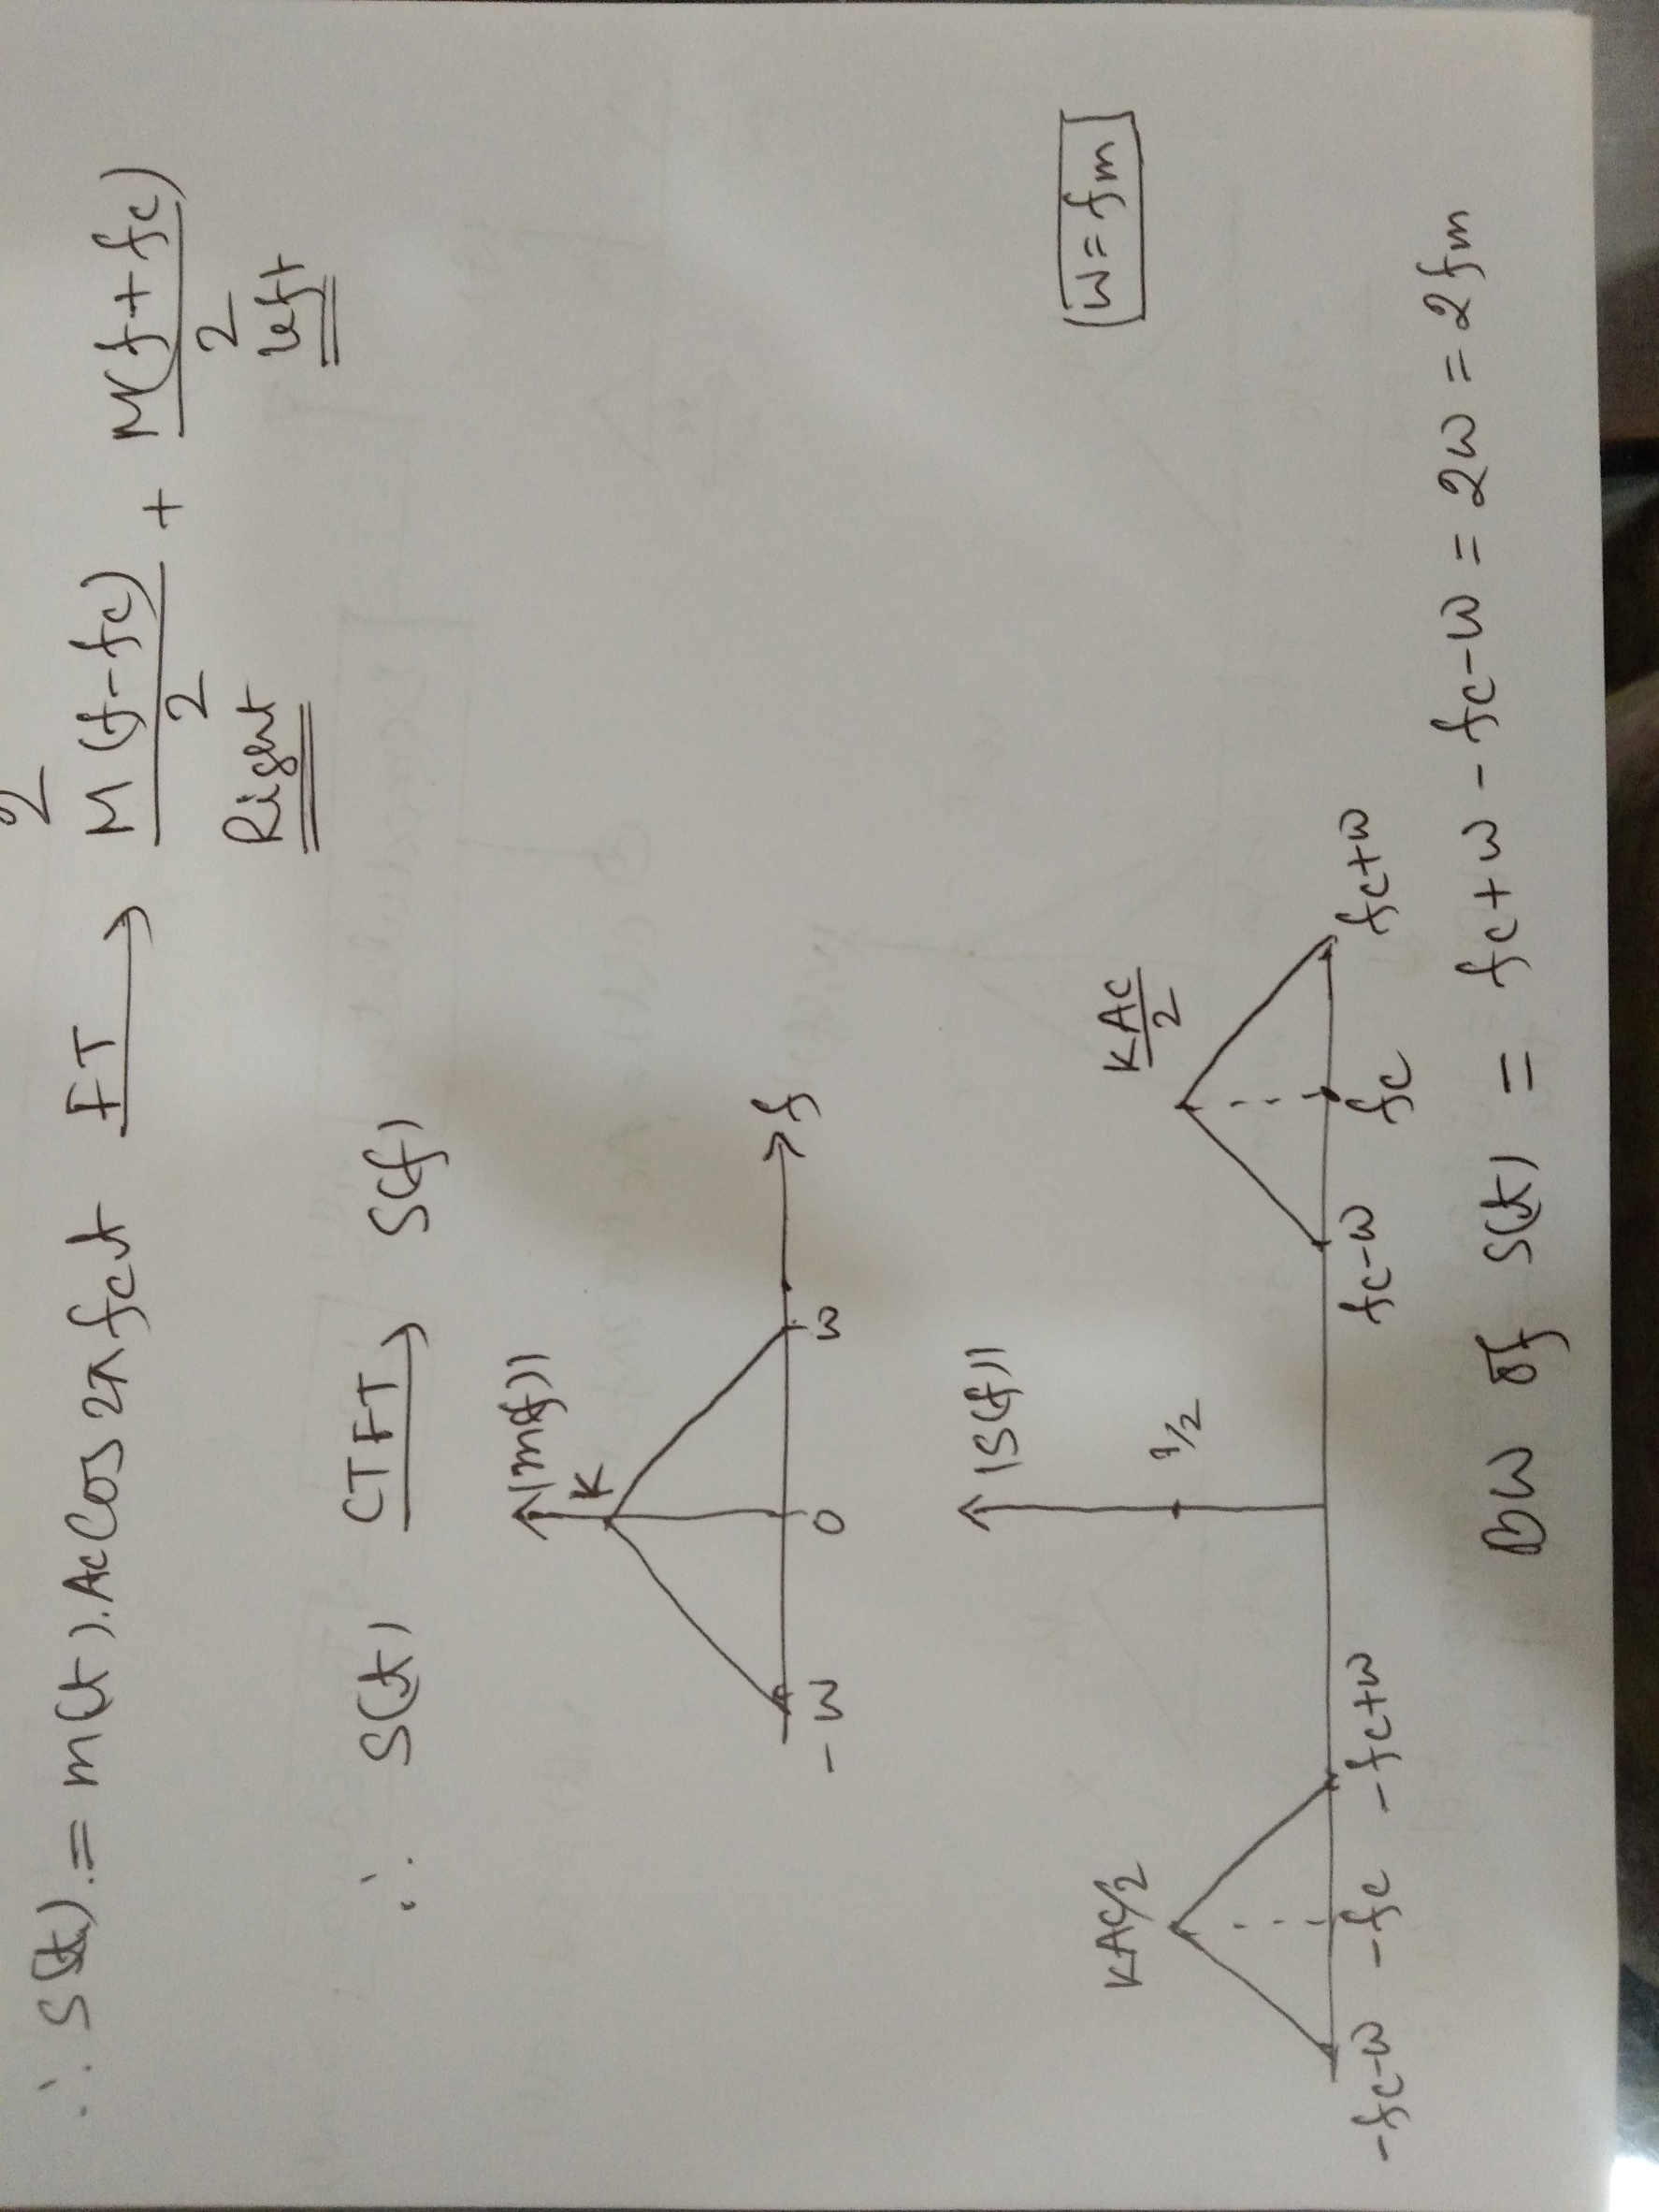 2
∴ S(t) = m(t).Ac Cos 2π fct FT→ M(f-fc)/2 + M(f+fc)/2
Right left
∴ S(t) CTFT→ S(f)
|m(f)|
K
-W 0 W f
|S(f)|
KAc/2 1/2 KAc/2
[W = fm]
-fc-W -fc -fc+W fc-W fc fc+W
BW of S(t) = fc+W - fc-W = 2W = 2fm